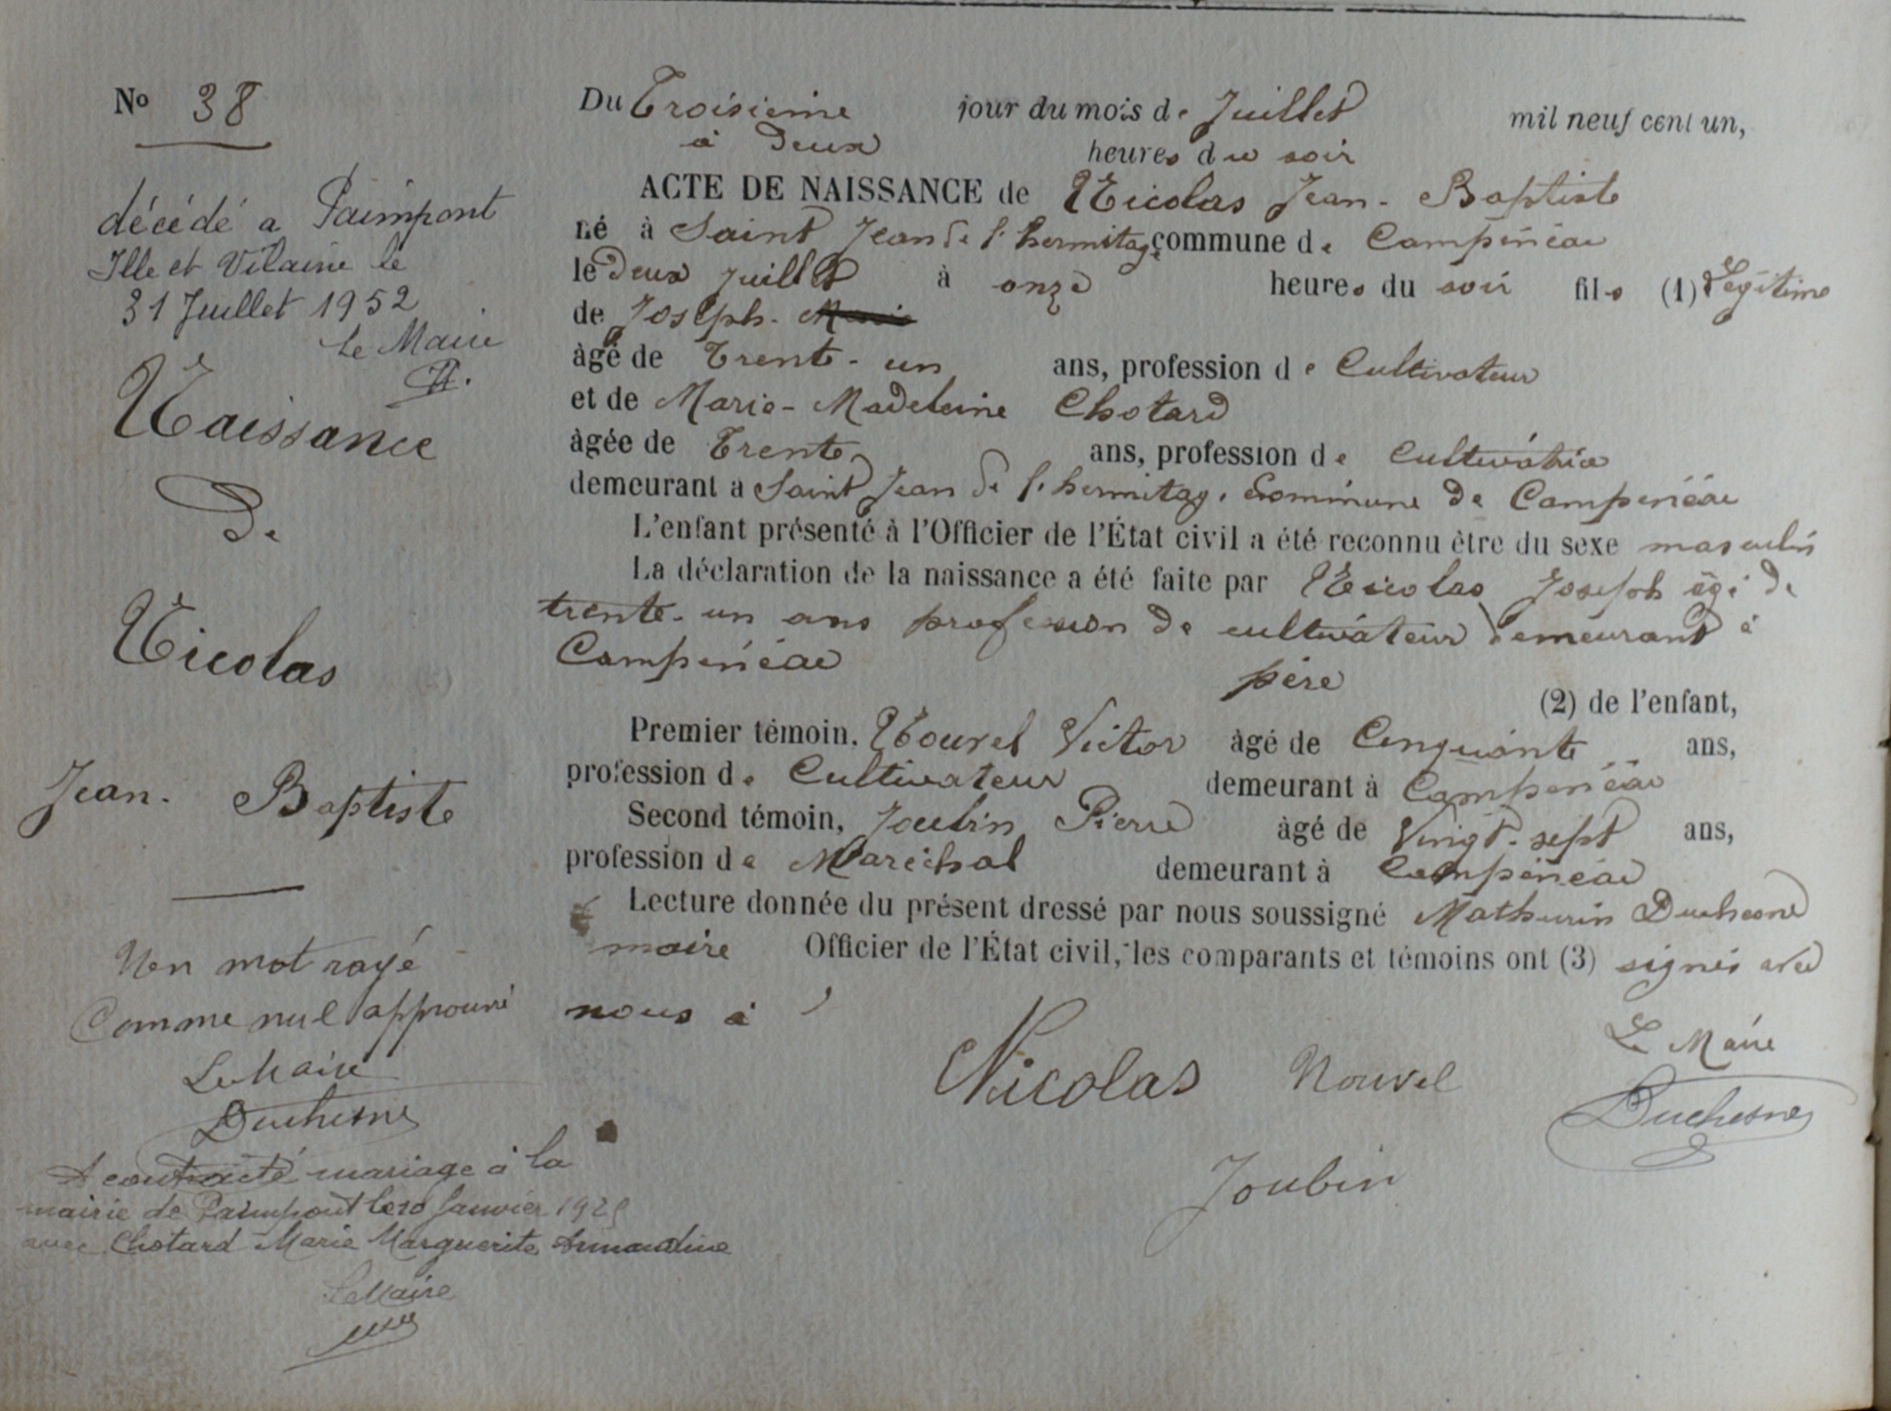 No 38
décédé a Paimpont
Ille et Vilaine le
31 Juillet 1952
Le Maire
Naissance
De
Nicolas
Jean-Baptiste
Un mot rayé
Comme nul approuvé
Le Maire
Duchesne
A contracté mariage à la
mairie de Paimpont le 10 Janvier 1925
avec Chotard Marie Marguerite Armandine
Le Maire
Du Troisieme jour du mois de Juillet mil neuf cent un,
à Deux heures du soir
ACTE DE NAISSANCE de Nicolas Jean-Baptiste
né à Saint Jean de l'hermitage commune de Campénéac
le Deux Juillet à onze heures du soir fils (1) Légitime
de Joseph-
âgé de Trente-un ans, profession de Cultivateur
et de Marie-Madeleine Chotard
âgée de Trente ans, profession de Cultivatrice
demeurant a Saint Jean de l'hermitage Commune de Campénéac
L'enfant présenté à l'Officier de l'État civil a été reconnu être du sexe masculin
La déclaration de la naissance a été faite par Nicolas Joseph âgé de
trente-un ans profession de cultivateur demeurant à
Campénéac père (2) de l'enfant,
Premier témoin, Nouvel Victor âgé de Cinquante ans,
profession de Cultivateur demeurant à Campénéac
Second témoin, Joubin Pierre âgé de Vingt-sept ans,
profession de Maréchal demeurant à Campénéac
Lecture donnée du présent dressé par nous soussigné Mathurin Duchesne
maire Officier de l'État civil, les comparants et témoins ont (3) signés avec
nous à
Le Maire
Nicolas Nouvel Duchesne
Joubin